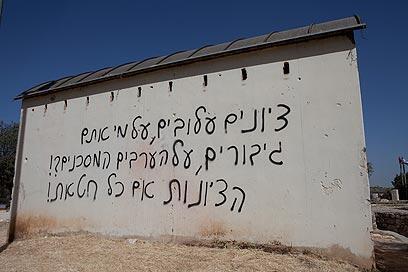 ציונים עלובים, על מי אתם
גיבורים, על הערבים המסכנים?!
הציונות אם כל חטאת!